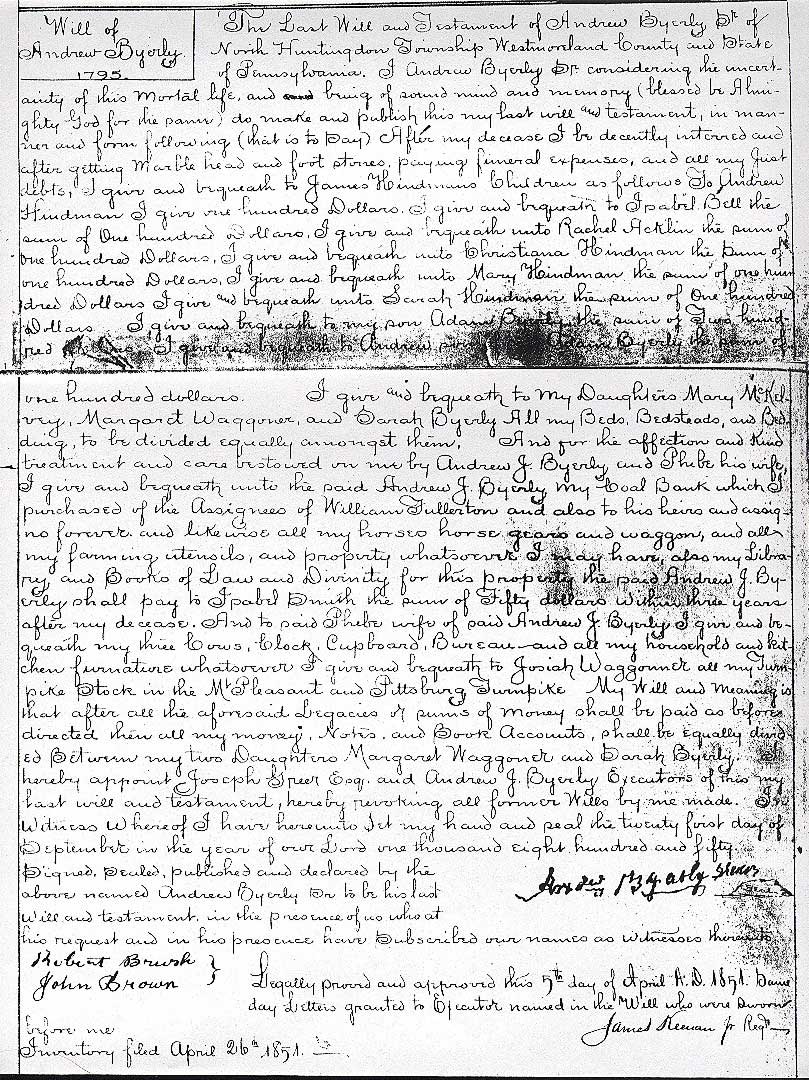 Will of
Andrew Byerly.
1795.
The Last Will and Testament of Andrew Byerly Sr. of
North Huntingdon Township Westmoreland County and State
of Pennsylvania. I Andrew Byerly Sr. considering the uncert-
ainty of this Mortal life, and and being of sound mind and memory (blessed be Almi-
ghty God for the same) do make and publish this my last will and testament, in man-
ner and form following (that is to say) After my decease I be decently interred and
after getting Marble head and foot stones, paying funeral expenses, and all my just
debts, I give and bequeath to James Hindmans Children as follows To Andrew
Hindman I give one hundred Dollars. I give and bequeath to Isabil Bell the
sum of One hundred Dollars, I give and bequeath unto Rachel Acklin the sum of
one hundred Dollars, I give and bequeath unto Christiana Hindman the sum of
one hundred Dollars, I give and bequeath unto Mary Hindman the sum of one hun
dred Dollars I give and bequeath unto Sarah Hindman the sum of One hundred
Dollars I give and bequeath to my son Adam Byerly the sum of Two hund-
red I give and bequeath to Andrew Adam Byerly the sum of
one hundred dollars. I give and bequeath to My Daughters Mary McKel-
vey, Margaret Waggoner, and Sarah Byerly All my Beds, Bedsteads, and Bed
ding, to be divided equally amongst them, And for the affection and kind
treatment and care bestowed on me by Andrew J. Byerly and Phebe his wife,
I give and bequeath unto the said Andrew J. Byerly My Coal Bank which I
purchased of the Assignees of William Fullerton and also to his heirs and assig-
ns forever. and likewise all my horses horse gears and waggon, and all
my farming utensils, and property whatsoever I may have, also my Libra-
ry, and Books of Law and Divinity for this property the said Andrew J. By-
erly shall pay to Isabel Smith the sum of Fifty dollars within three years
after my decease. And to said Phebe wife of said Andrew J. Byerly I give and be-
queath my three Cows, Clock, Cupboard, Bureau and all my household and kit-
chen furnature whatsoever I give and bequeath to Josiah Waggonner all my Turn-
pike Stock in the Mt Pleasant and Pittsburg Turnpike My Will and meaning is
that after all the aforesaid Legacies or sums of money shall be paid as before
directed then all my money, Notes, and Book Accounts, shall be equally divid-
ed Between my two Daughters Margaret Waggoner and Sarah Byerly. I
hereby appoint Joseph Greer Esq. and Andrew J. Byerly Executors of this my
last will and testament, hereby revoking all former Wills by me made. In
Witness Whereof I have hereunto set my hand and seal the twenty first day of
September in the year of our Lord one thousand eight hundred and fifty.
Signed, Sealed, published and declared by the
above named Andrew Byerly Sr to be his last
Will and testament, in the presence of us who at
his request and in his presence have subscribed our names as witnesses thereto
Andrew Byerly
Robert Brush
John Brown
Legally proved and approved this 5th day of April A.D. 1851. Same
day Letters granted to Executor named in the Will who were sworn
before me
James Keenan Jr Regtr
Inventory filed April 26th 1851.